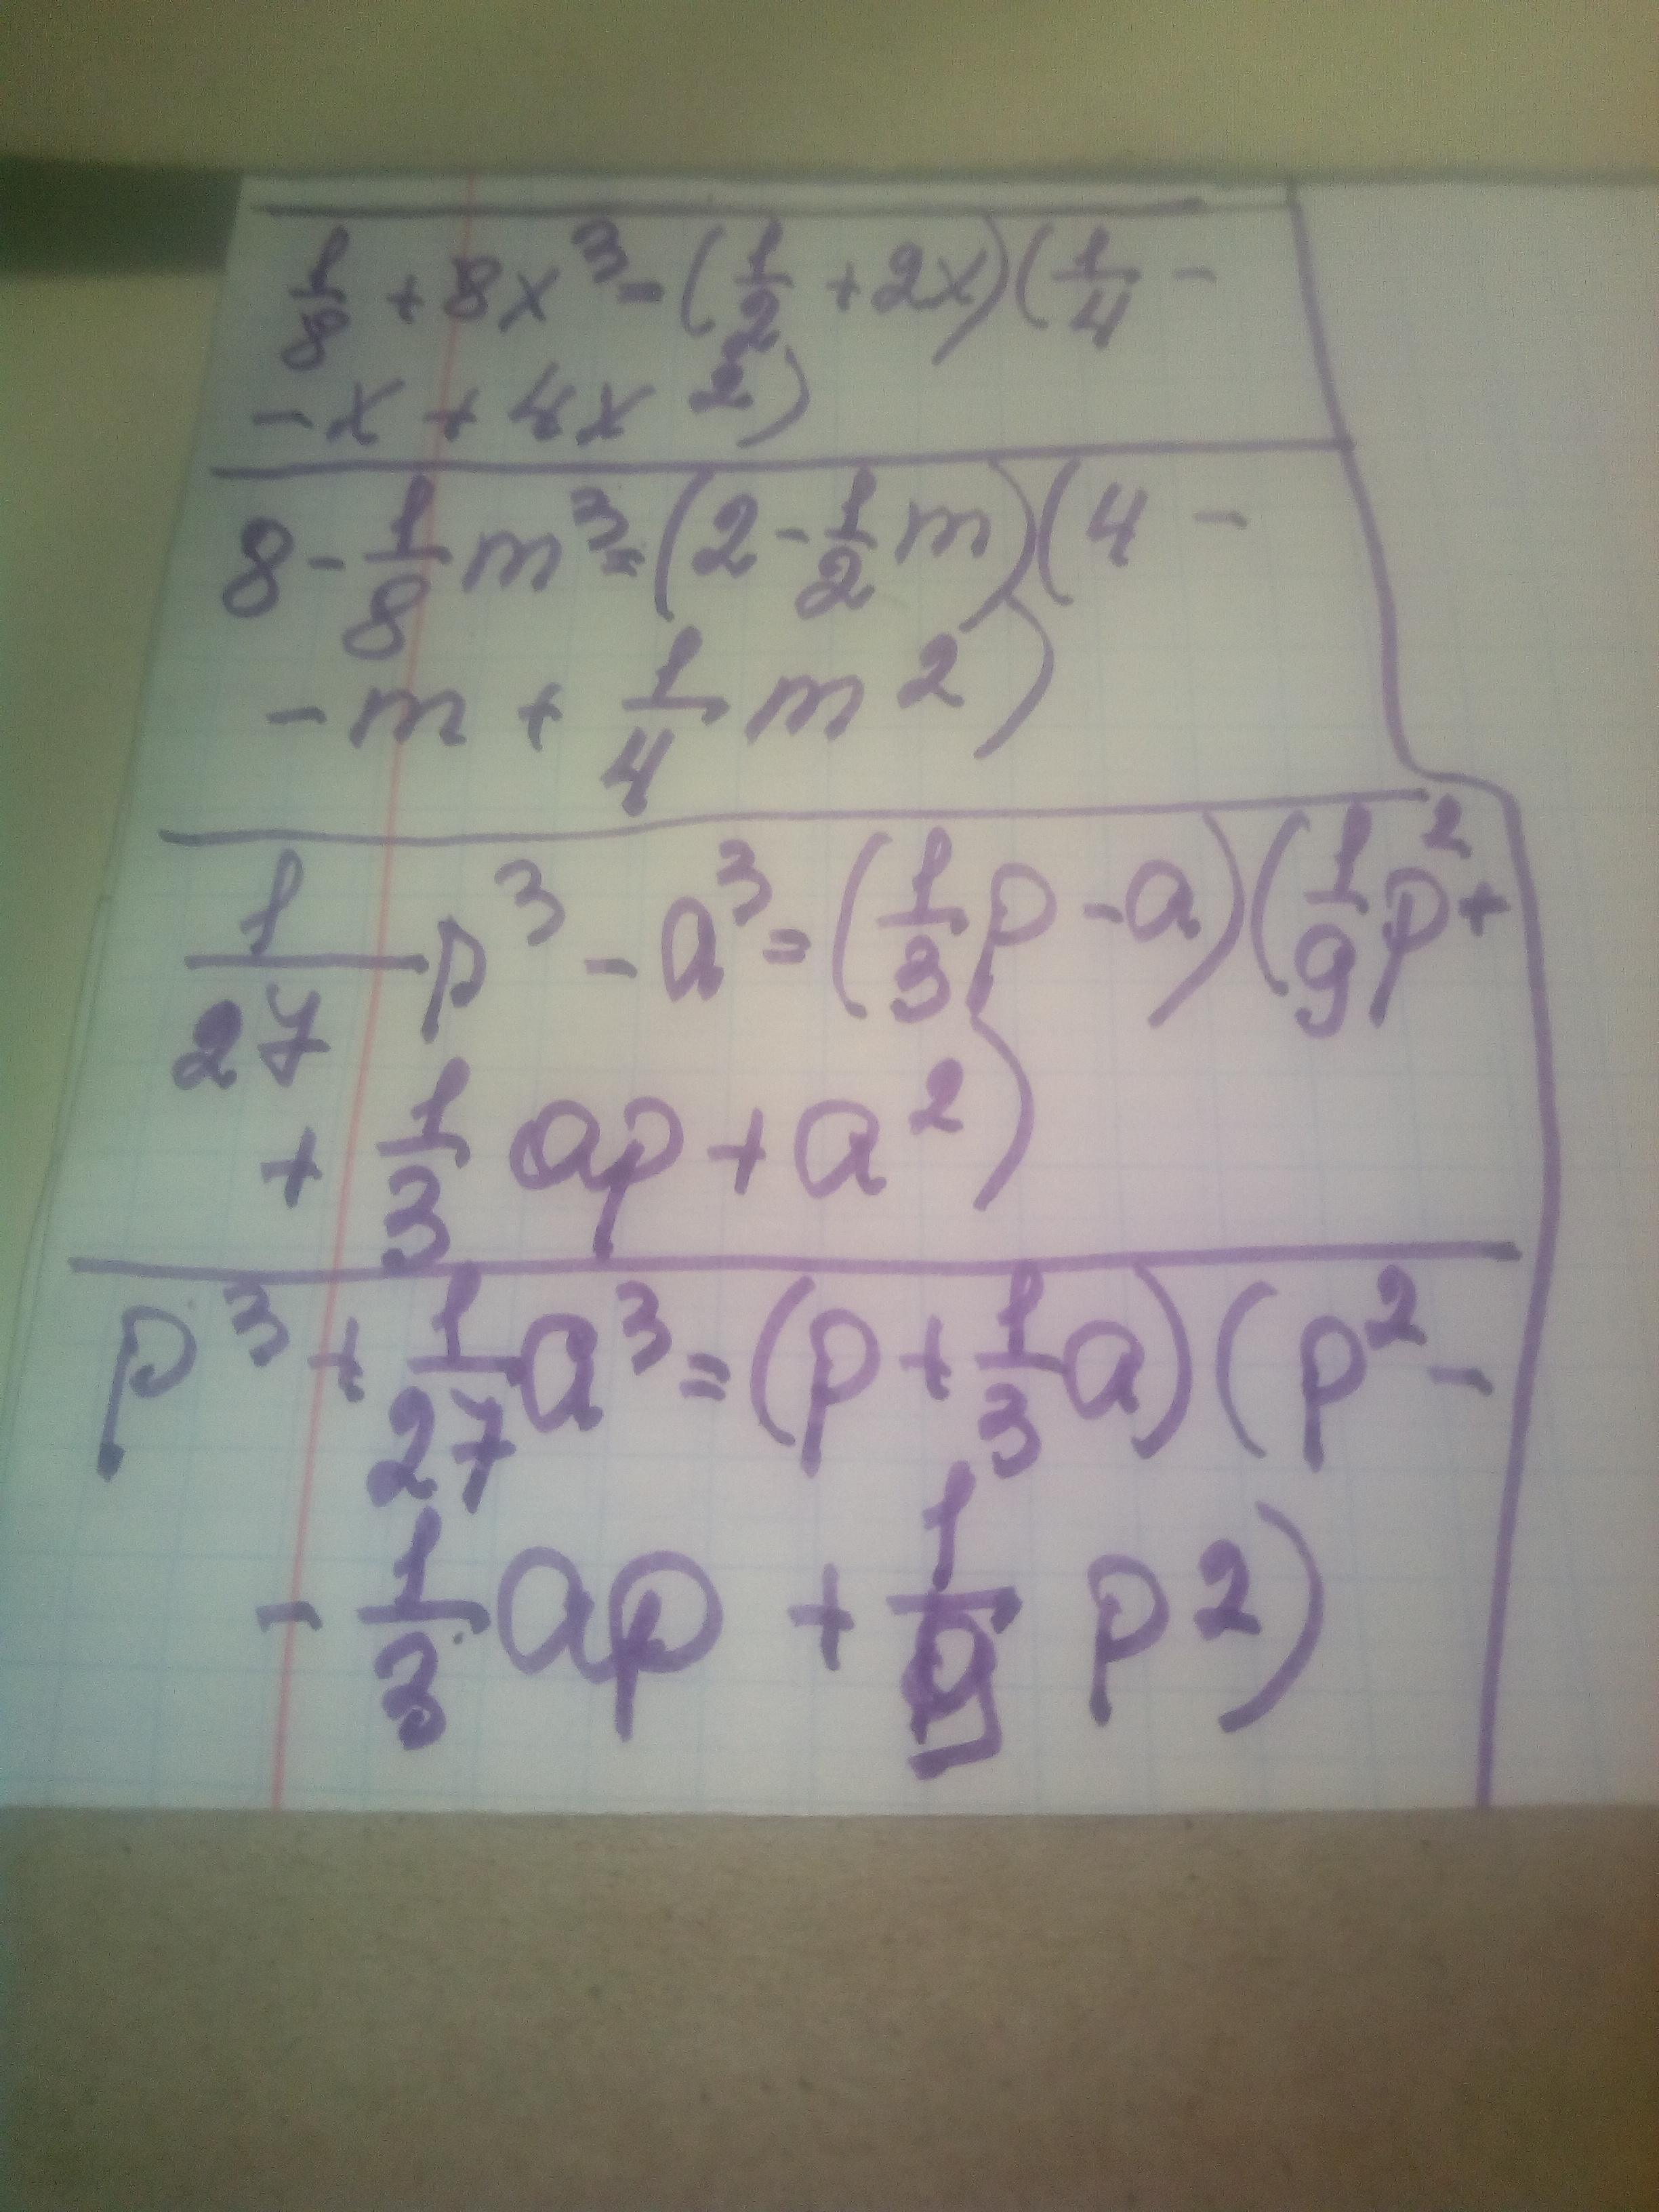 1/8 + 8x³ - (1/2 + 2x)(1/4 -
- x + 4x²)
8 - 1/8 m³ = (2 - 1/2 m)(4 -
- m + 1/4 m²)
1/27 p³ - a³ = (1/3 p - a)(1/9 p² +
+ 1/3 ap + a²)
p³ + 1/27 a³ = (p + 1/3 a)(p² -
- 1/3 ap + 1/9 p²)